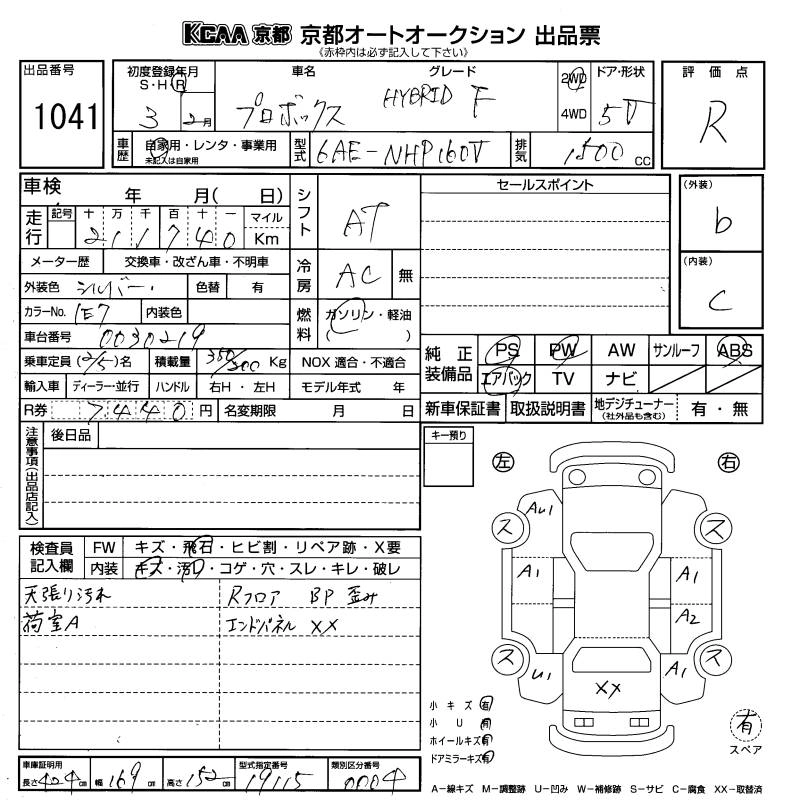 KCAA 京都 京都オートオークション 出品票
《赤枠内は必ず記入して下さい》
出品番号 1041
初度登録年月 S・H・R 3 2月
車名 プロボックス
グレード HYBRID F
2WD 4WD
ドア・形状 5V
評価点 R
車歴 自家用・レンタ・事業用 未記入は自家用
型式 6AE-NHP160V
排気 1500 CC
車検 年 月( 日)
シフト AT
セールスポイント
(外装) b
走行 記号 十 万 千 百 十 一 マイル Km
211740
メーター歴 交換車・改ざん車・不明車
冷房 AC 無
(内装) C
外装色 シルバー 色替 有
カラーNo. 1E7 内装色
燃料 ガソリン・軽油 ( )
車台番号 0030219
乗車定員 (2/5)名 積載量 350/300 Kg NOX 適合・不適合
純正装備品 PS PW AW サンルーフ ABS
エアバック TV ナビ
輸入車 ディーラー・並行 ハンドル 右H・左H モデル年式 年
R券 7440円 名変期限 月 日
新車保証書 取扱説明書 地デジチューナー (社外品も含む) 有・無
注意事項(出品店記入) 後日品
キー預り
左 右
ス ス
AU1
A1 A1
A2
ス ス
U1 A1
XX
検査員記入欄 FW キズ・飛石・ヒビ割・リペア跡・X要
内装 キズ・汚れ・コゲ・穴・スレ・キレ・破レ
天張り汚れ Rフロア BP 歪み
荷室A エンドパネル XX
小キズ 有
小U 有
ホイールキズ 有
ドアミラーキズ 有
有 スペア
車庫証明用 長さ 424 cm 幅 169 cm 高さ 152 cm
型式指定番号 19115
類別区分番号 0004
A-線キズ M-調整跡 U-凹み W-補修跡 S-サビ C-腐食 XX-取替済